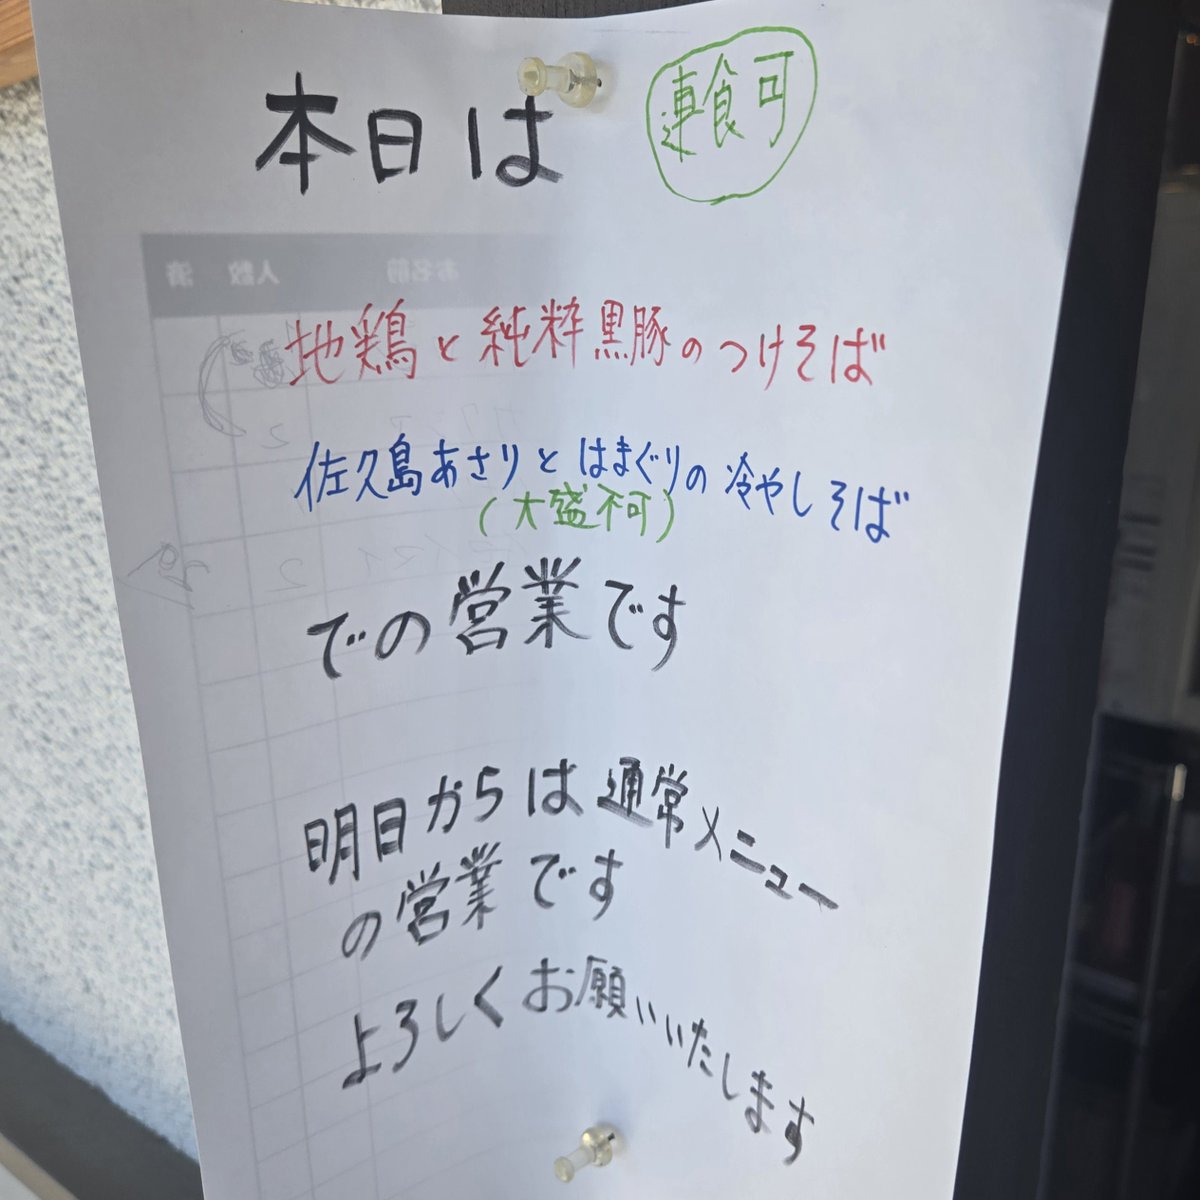 本日は
連食可
地鶏と純粋黒豚のつけそば
佐久島あさりとはまぐりの冷やしそば
(大盛不可)
での営業です
明日からは通常メニュー
の営業です
よろしくお願いいたします